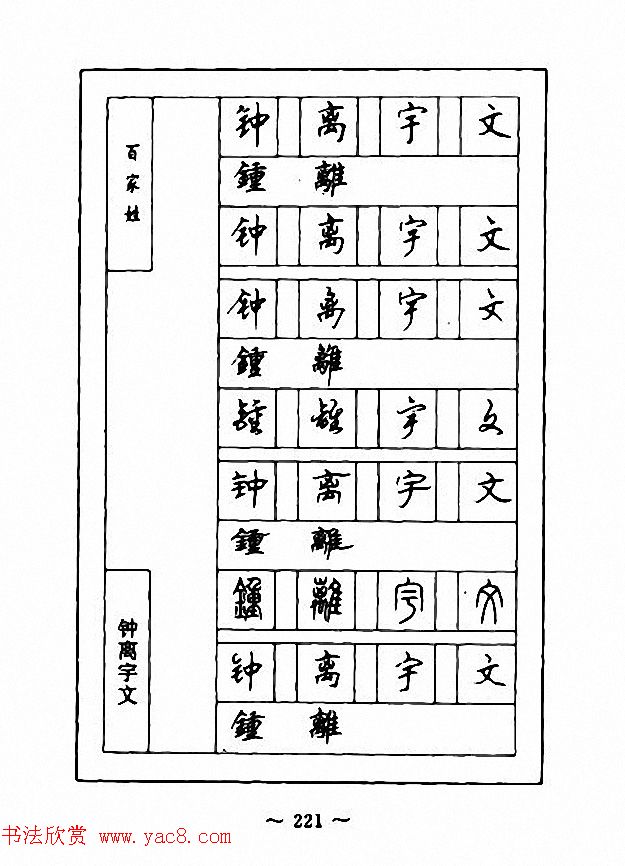 百家姓
钟离宇文
钟 离 宇 文
鍾 離
钟 离 宇 文
钟 离 宇 文
鍾 離
鍾 離 宇 文
钟 离 宇 文
鍾 離
鍾 離 宇 文
钟 离 宇 文
鍾 離
~ 221 ~
书法欣赏 www.yac8.com